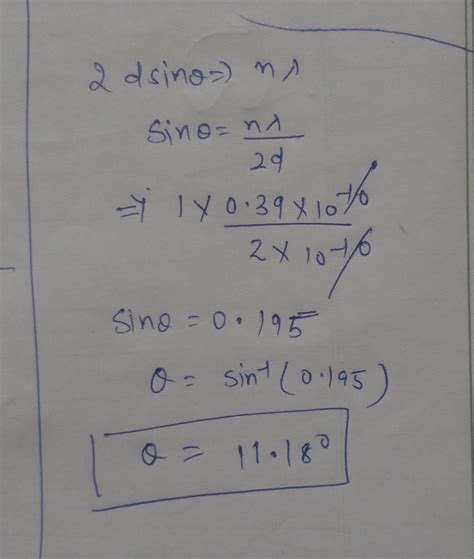 2 dsinθ ⇒ nλ
sinθ = nλ
2d
⇒ 1 × 0.39 × 10⁻¹⁰
2 × 10⁻¹⁰
sinθ = 0.195
θ = sin⁻¹ (0.195)
θ = 11.18°